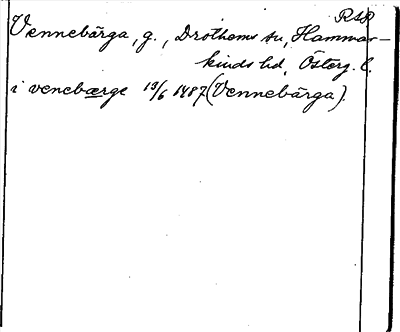 RSP
Vennebärga, g., Drothems sn, Hammar-
kinds hd, Österg. l.
i venebærge 19/6 1487 (Vennebärga).